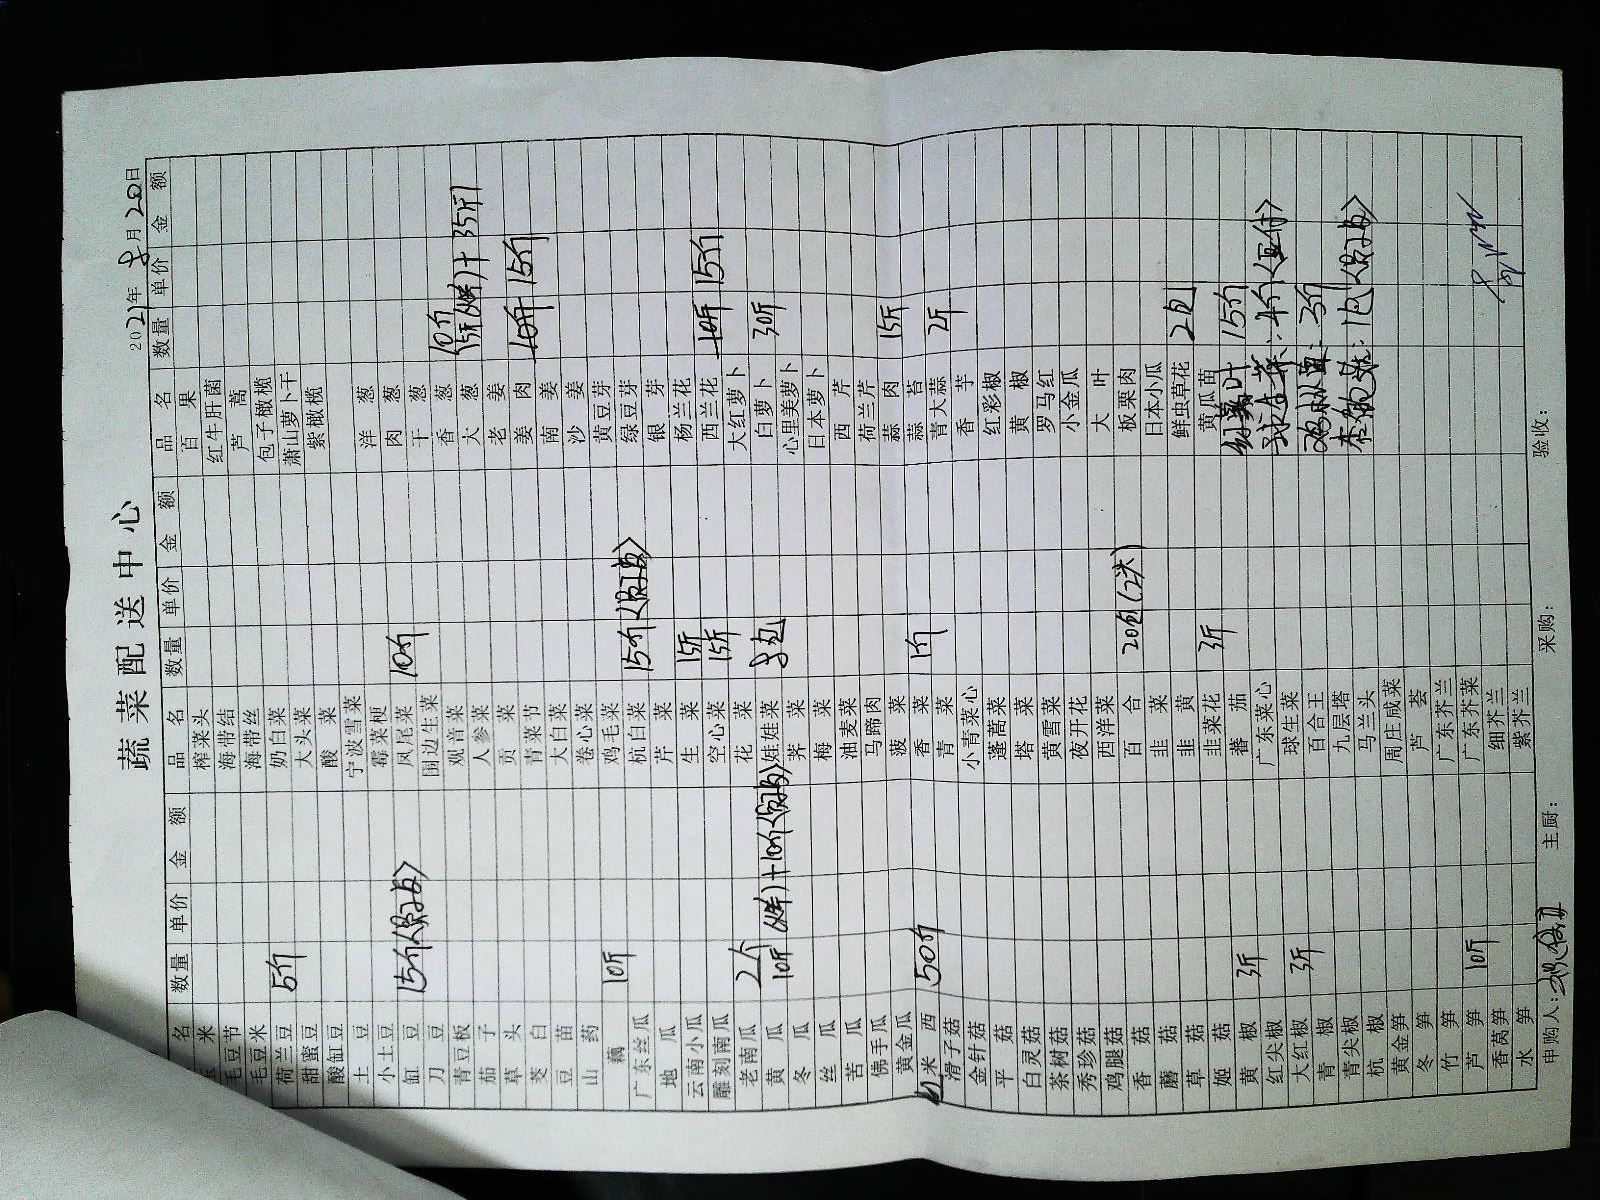 蔬菜配送中心
2021年8月20日
品名 数量 单价 金额 品名 数量 单价 金额 品名 数量 单价 金额
米 榨菜头 百果
毛豆节 海带结 红牛肝菌
毛豆米 海带丝 芦蒿
荷兰豆 5斤 奶白菜 包子橄榄
甜蜜豆 大头菜 萧山萝卜干
酸豇豆 酸菜 紫橄榄
土豆 宁波雪菜
小土豆 霉菜梗 洋葱
缸豆 15斤 凤尾菜 10斤 肉葱
刀豆 围边生菜 干葱
青豆板 观音菜 香葱 10斤
茄子 人参菜 大葱 +35斤
草头 贡菜 老姜
茭白 青菜节 姜肉 10斤 15斤
豆苗 大白菜 南姜
山药 卷心菜 沙姜
藕 10斤 鸡毛菜 黄豆芽
广东丝瓜 杭白菜 15斤 绿豆芽
地瓜 芹菜 银芽
云南小瓜 生菜 15斤 杨兰花
雕刻南瓜 空心菜 15斤 西兰花 10斤 15斤
老南瓜 2个 花菜 大红萝卜
黄瓜 10斤 +10斤 娃娃菜 8包 白萝卜 30斤
冬瓜 荠菜 心里美萝卜
丝瓜 梅菜 日本萝卜
苦瓜 油麦菜 西芹
佛手瓜 马蹄肉 荷兰芹
黄金瓜 菠菜 蒜肉 15斤
米西 50斤 香菜 1斤 蒜苔
滑子菇 青菜 青大蒜 2斤
金针菇 小青菜心 香芋
平菇 蓬蒿菜 红彩椒
白灵菇 塔菜 黄椒
茶树菇 黄雪菜 罗马红
秀珍菇 夜开花 小金瓜
鸡腿菇 西洋菜 大叶
香菇 百合 20包 板栗肉
蘑菇 韭菜 日本小瓜
草菇 韭黄 鲜虫草花 2包
姬菇 韭菜花 3斤 黄瓜苗
黄椒 3斤 蕃茄 15斤
红尖椒 广东菜心 球生菜: 4斤
大红椒 3斤 球生菜 3斤
青椒 百合王 1包
青尖椒 九层塔
杭椒 马兰头
黄金笋 周庄咸菜
冬笋 芦荟
竹笋 广东芥兰
芦笋 10斤 广东芥菜
香莴笋 细芥兰
水笋 紫芥兰
申购人: 主厨: 采购: 验收: